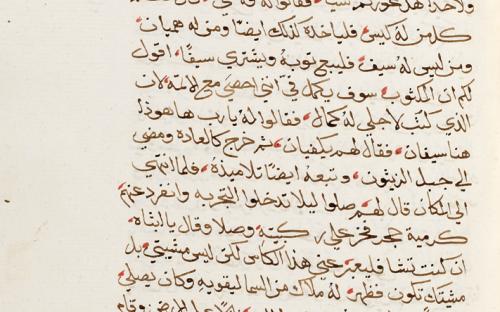 ولاحدا هل عوزتم شيا فقالوا له ولا شي قال
كلمن له كيس فلياخذه كذلك ايضا ومن له هميان
ومن ليس له سيف فليبع ثوبه ويشتري سيفا اقول
لكم ان المكتوب سوف يكمل فيّ انني احصي مع الاثمة لان
الذي كتب لاجلي له كمال فقالوا له يارب هاهوذا
هنا سيفان فقال لهم يكفيان ثم خرج كالعادة ومضي
الي جبل الزيتون وتبعه ايضا تلاميذه فلما انتهي
الي المكان قال لهم صلوا ليلا تدخلوا التجربه وانفرد عنهم
كرمية حجر فخر علي ركبتيه وصلا وقال يا ابتاه
ان كنت تشا فليعبر عني هذا الكاس لكن ليس مشيتي بل
مشيتك تكون فظهر له ملاك من السما ليقويه وكان يصلي
الارض وقام